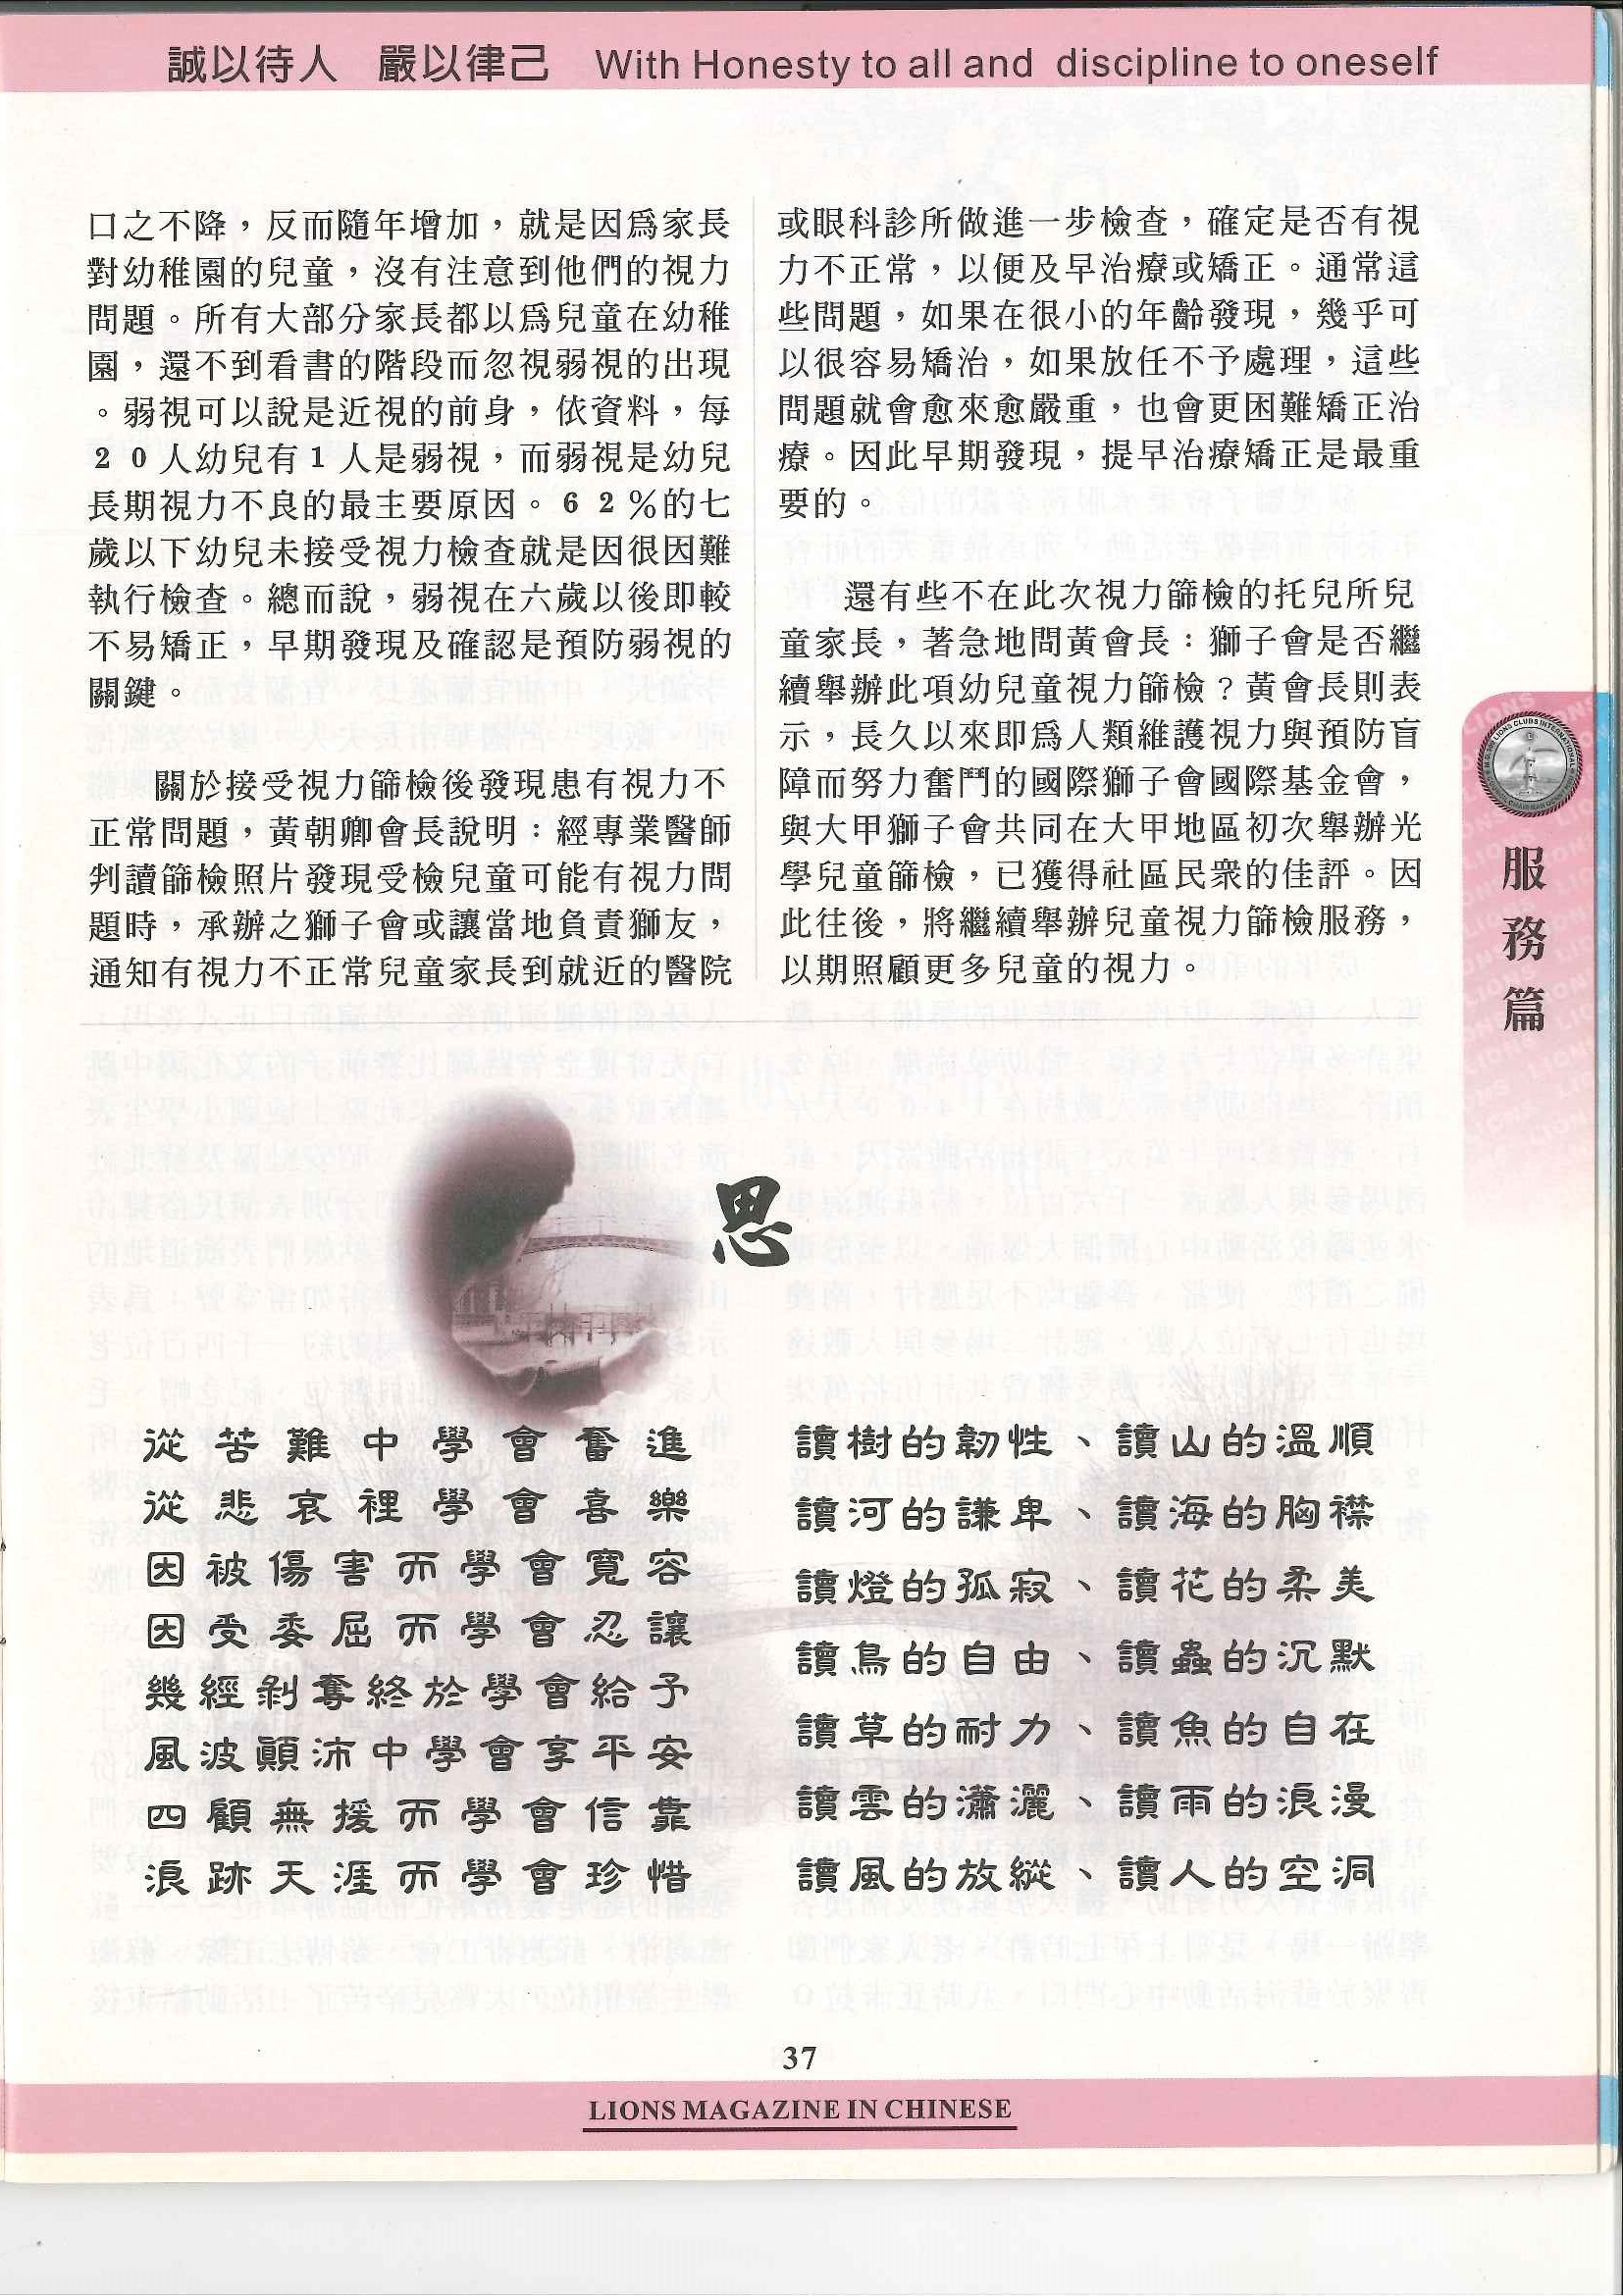 誠以待人　嚴以律己　With Honesty to all and discipline to oneself
口之不降，反而隨年增加，就是因爲家長
對幼稚園的兒童，沒有注意到他們的視力
問題。所有大部分家長都以爲兒童在幼稚
園，還不到看書的階段而忽視弱視的出現
。弱視可以說是近視的前身，依資料，每
２０人幼兒有１人是弱視，而弱視是幼兒
長期視力不良的最主要原因。６２％的七
歲以下幼兒未接受視力檢查就是因很因難
執行檢查。總而說，弱視在六歲以後即較
不易矯正，早期發現及確認是預防弱視的
關鍵。
關於接受視力篩檢後發現患有視力不
正常問題，黃朝卿會長說明：經專業醫師
判讀篩檢照片發現受檢兒童可能有視力問
題時，承辦之獅子會或讓當地負責獅友，
通知有視力不正常兒童家長到就近的醫院
或眼科診所做進一步檢查，確定是否有視
力不正常，以便及早治療或矯正。通常這
些問題，如果在很小的年齡發現，幾乎可
以很容易矯治，如果放任不予處理，這些
問題就會愈來愈嚴重，也會更困難矯正治
療。因此早期發現，提早治療矯正是最重
要的。
還有些不在此次視力篩檢的托兒所兒
童家長，著急地問黃會長：獅子會是否繼
續舉辦此項幼兒童視力篩檢？黃會長則表
示，長久以來即爲人類維護視力與預防盲
障而努力奮鬥的國際獅子會國際基金會，
與大甲獅子會共同在大甲地區初次舉辦光
學兒童篩檢，已獲得社區民衆的佳評。因
此往後，將繼續舉辦兒童視力篩檢服務，
以期照顧更多兒童的視力。
服務篇
思
從苦難中學會奮進
從悲哀裡學會喜樂
因被傷害而學會寬容
因受委屈而學會忍讓
幾經剝奪終於學會給予
風波顛沛中學會享平安
四顧無援而學會信靠
浪跡天涯而學會珍惜
讀樹的韌性、讀山的溫順
讀河的謙卑、讀海的胸襟
讀燈的孤寂、讀花的柔美
讀鳥的自由、讀蟲的沉默
讀草的耐力、讀魚的自在
讀雲的瀟灑、讀雨的浪漫
讀風的放縱、讀人的空洞
37
LIONS MAGAZINE IN CHINESE